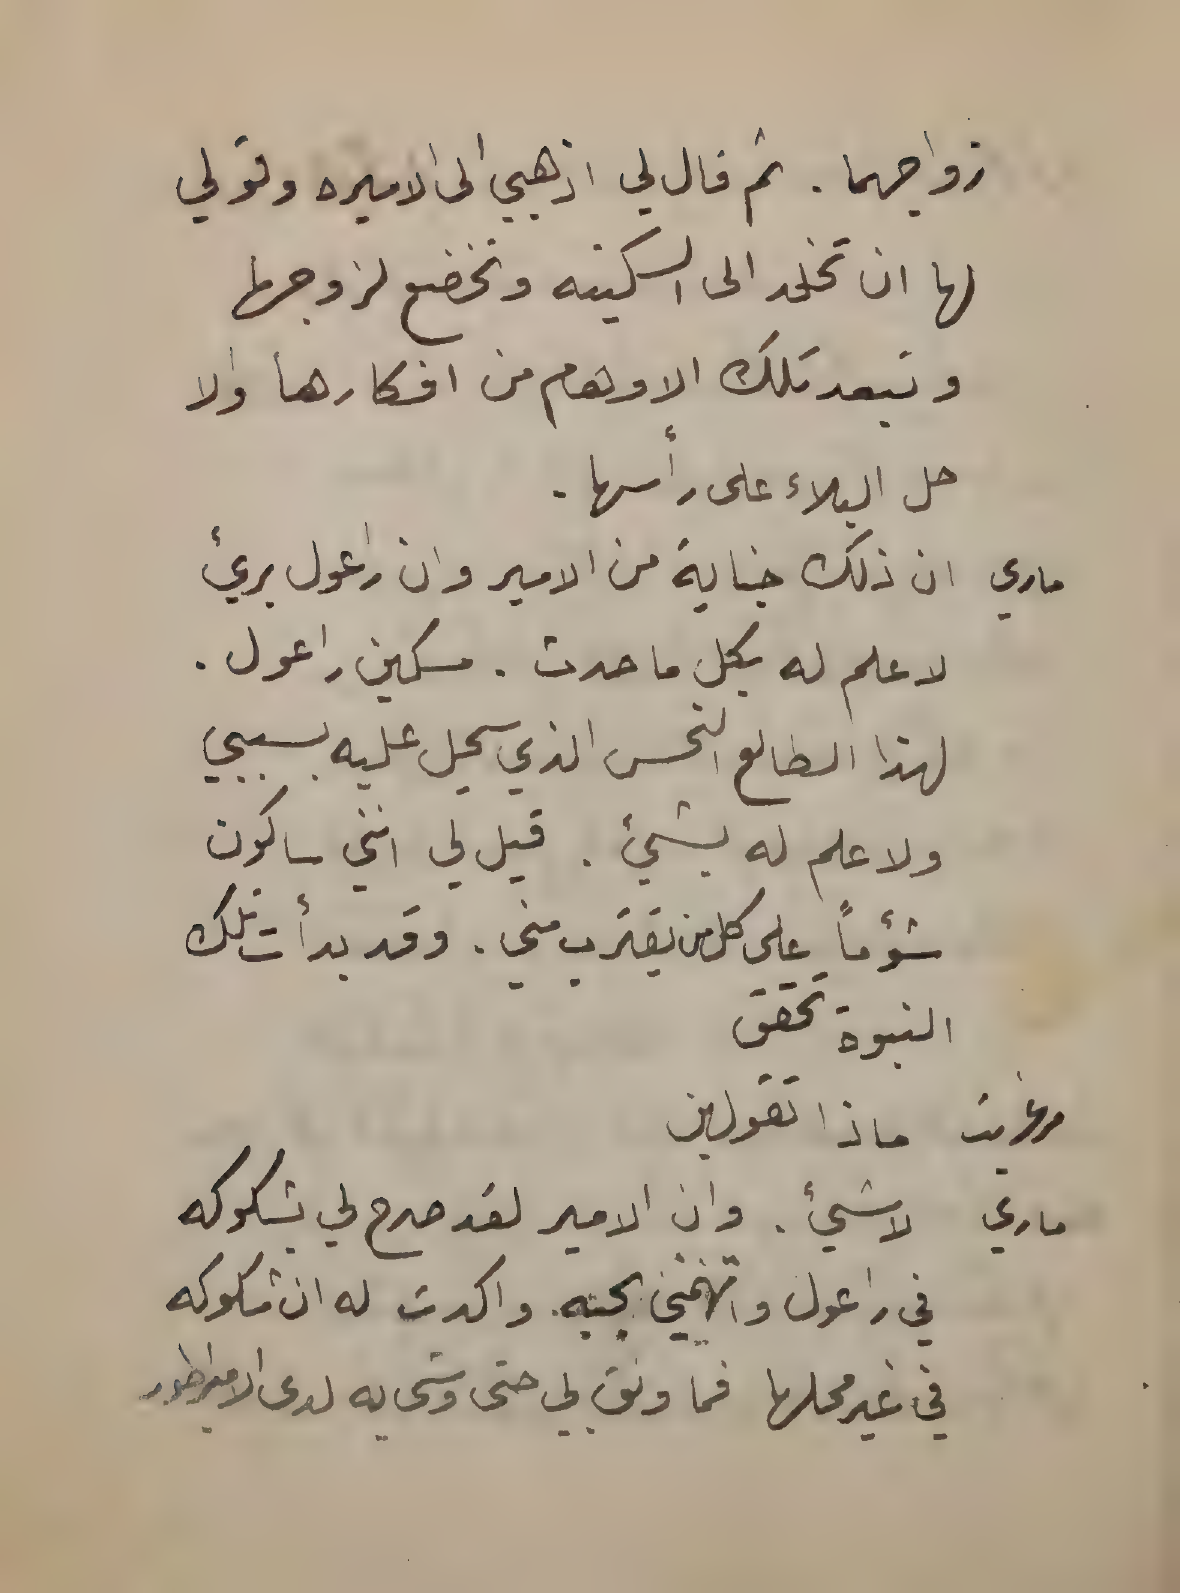 زواجهما . ثم قال لي اذهبي الى الاميره وقولي
لها ان تخلد الى السكينه وتخضع لزوجها
وتبعد تلك الاوهام من افكارها والا
حل البلاء على رأسها .
ماري ان ذلك جناية من الامير وان راعول بريئ
لا علم له بكل ما حدث . مسكين راعول .
لهذا الطالع النحس الذي سيحل عليه بسببي
ولا علم له بشيئ . قيل لي انني ساكون
شؤماً على كل من يقترب مني . وقد بدأت تلك
النبوة تحقق
مرغريت ماذا تقولين
ماري لا شيئ . وان الامير لقد صرح لي بشكوكه
في راعول واتهمني بحبه . واكدت له ان شكوكه
في غير محلها فما وثق بي حتى وشى به لدى الامبراطور